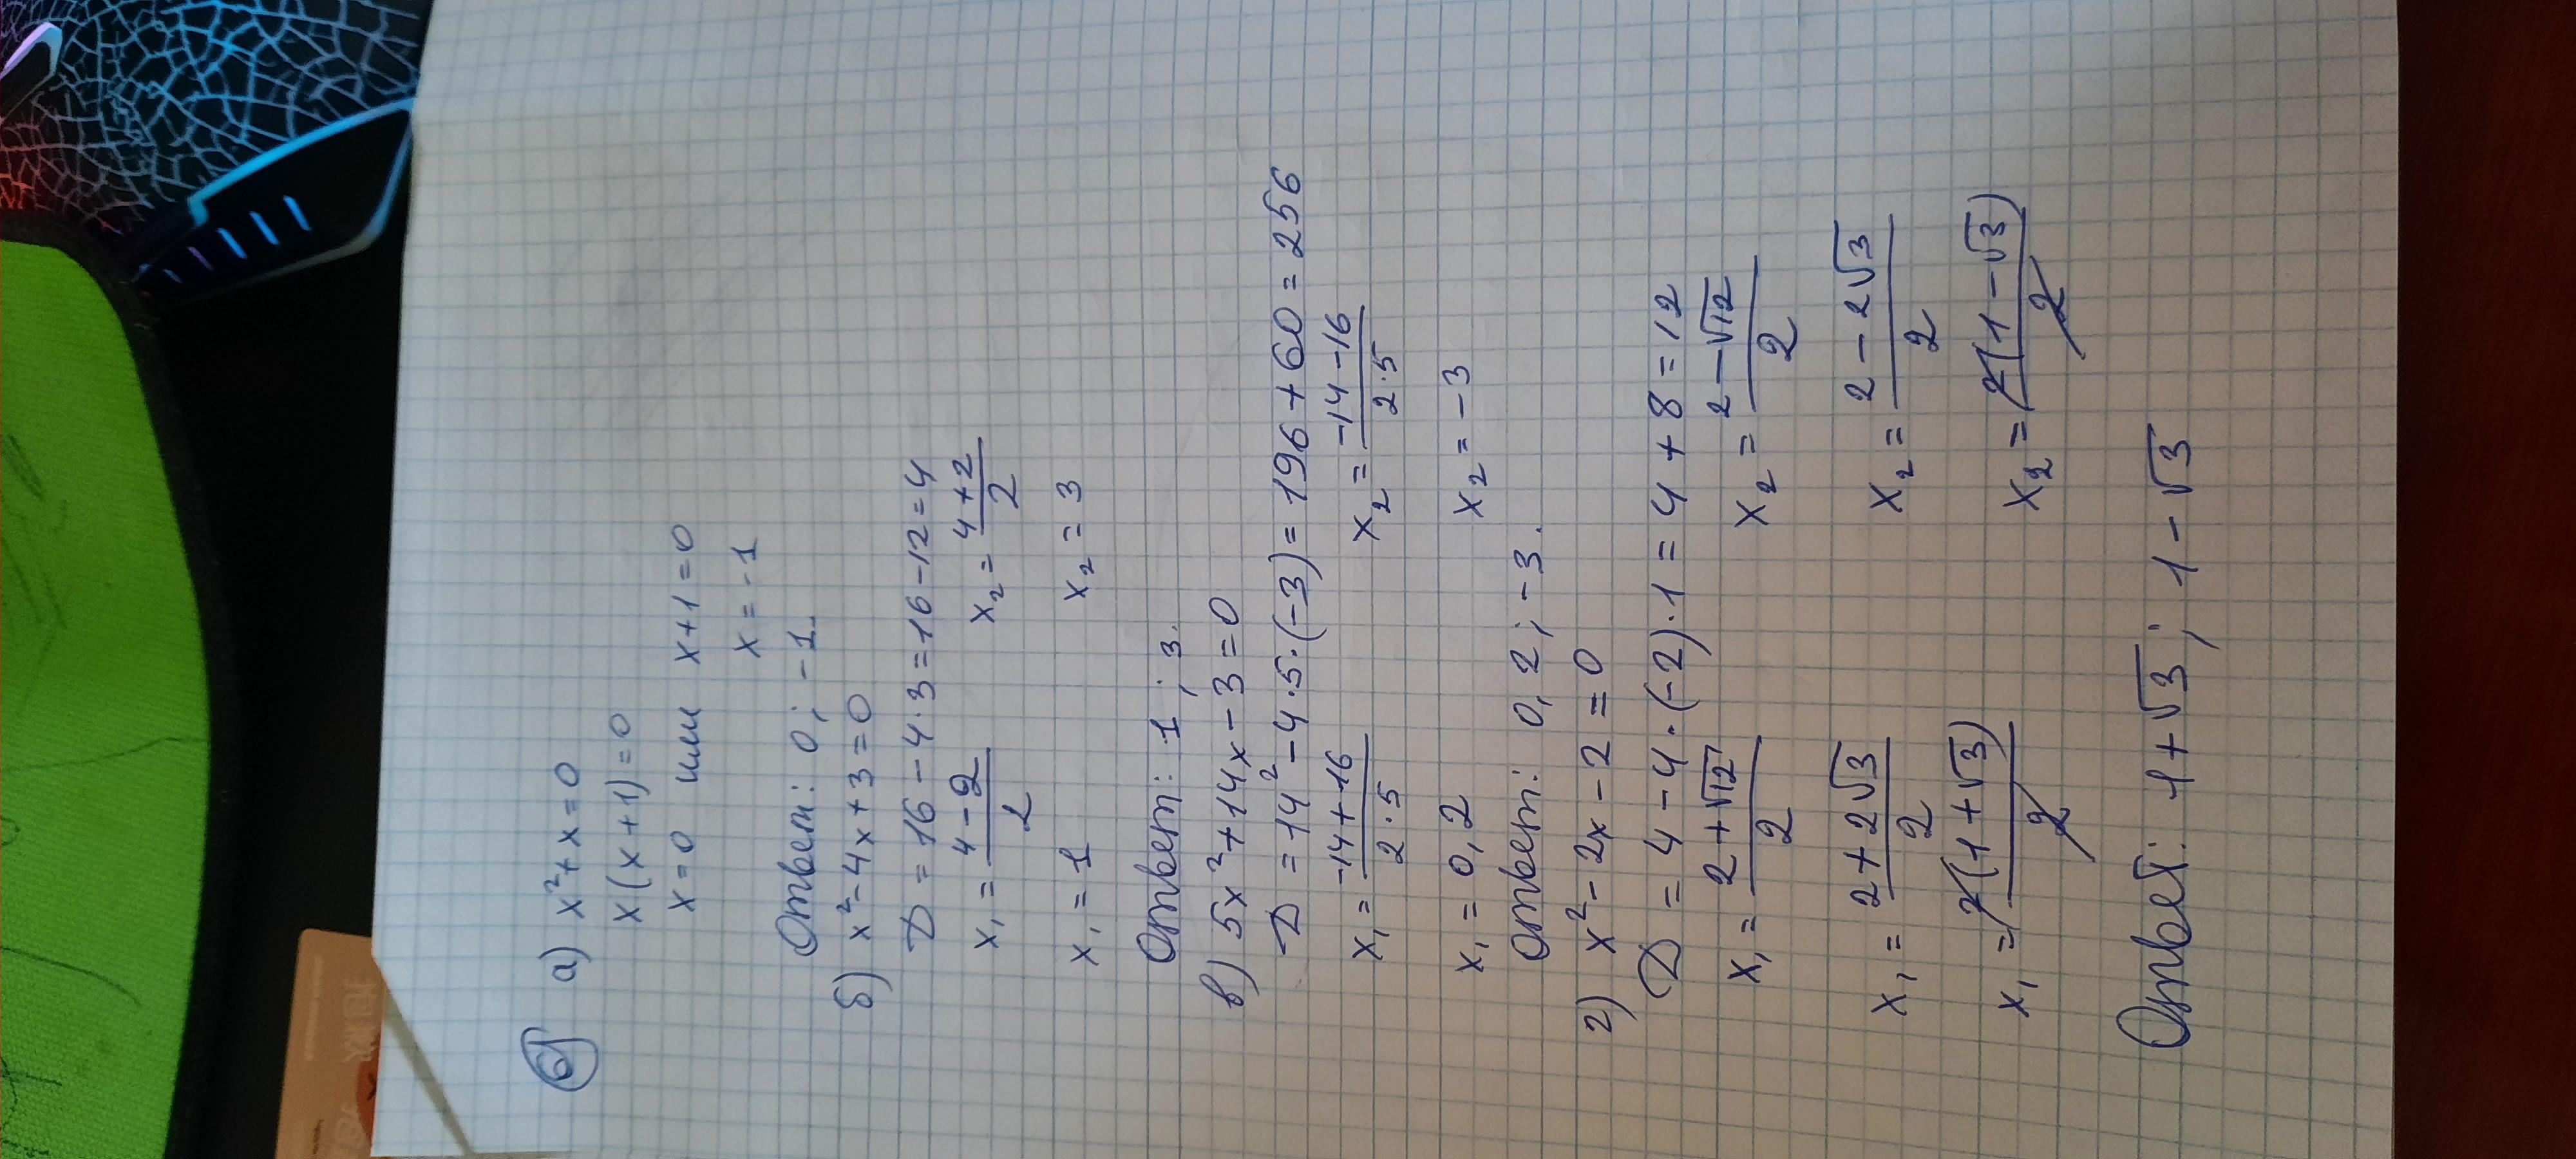 6) а) x²+x=0
x(x+1)=0
x=0 или x+1=0
x=-1
Ответ: 0; -1.
б) x²-4x+3=0
D=16-4·3=16-12=4
x₁=(4-2)/2 x₂=(4+2)/2
x₁=1 x₂=3
Ответ: 1; 3.
в) 5x²+14x-3=0
D=14²-4·5·(-3)=196+60=256
x₁=(-14+16)/(2·5) x₂=(-14-16)/(2·5)
x₁=0,2 x₂=-3
Ответ: 0,2; -3.
г) x²-2x-2=0
D=4-4·(-2)·1=4+8=12
x₁=(2+√12)/2 x₂=(2-√12)/2
x₁=(2+2√3)/2 x₂=(2-2√3)/2
x₁=2(1+√3)/2 x₂=2(1-√3)/2
Ответ: 1+√3; 1-√3